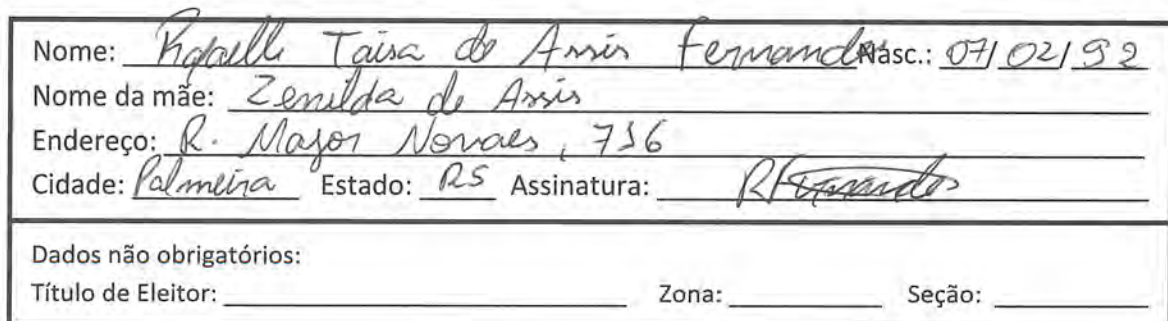 Nome: Rafaelli Taisa de Assis Fernandes Nasc.: 07/02/92
Nome da mãe: Zenilda de Assis
Endereço: R. Major Novaes, 716
Cidade: Palmeira Estado: RS Assinatura: RFernandes
Dados não obrigatórios:
Título de Eleitor: Zona: Seção: